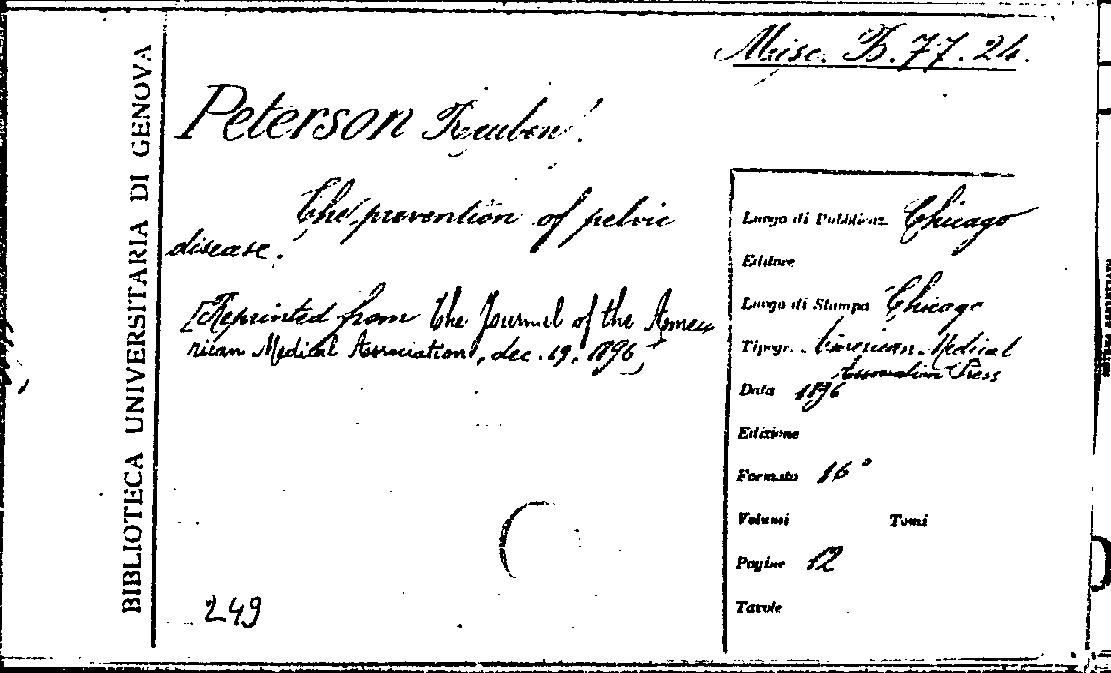 Misc. B.77.24.
BIBLIOTECA UNIVERSITARIA DI GENOVA
Peterson Reuben.
The prevention of pelvic
disease.
[Reprinted from the Journal of the Ame-
rican Medical Association, dec. 19. 1896]
249
Luogo di Pubblicaz. Chicago
Editore
Luogo di Stampa Chicago
Tipogr. American Medical
Association Press
Data 1896
Edizione
Formato 16°
Volumi Tomi
Pagine 12
Tavole